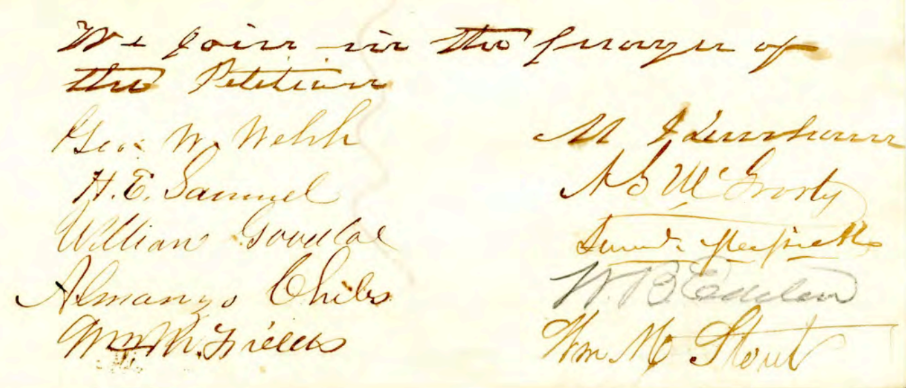 We join in the prayer of
the Petition
Geo. W. Welsh
H. E. Samuel
William Goodloe
Almanzo Chiles
Wm M. Fields
M J
N S McGrorty
W. B.
Wm M Stout